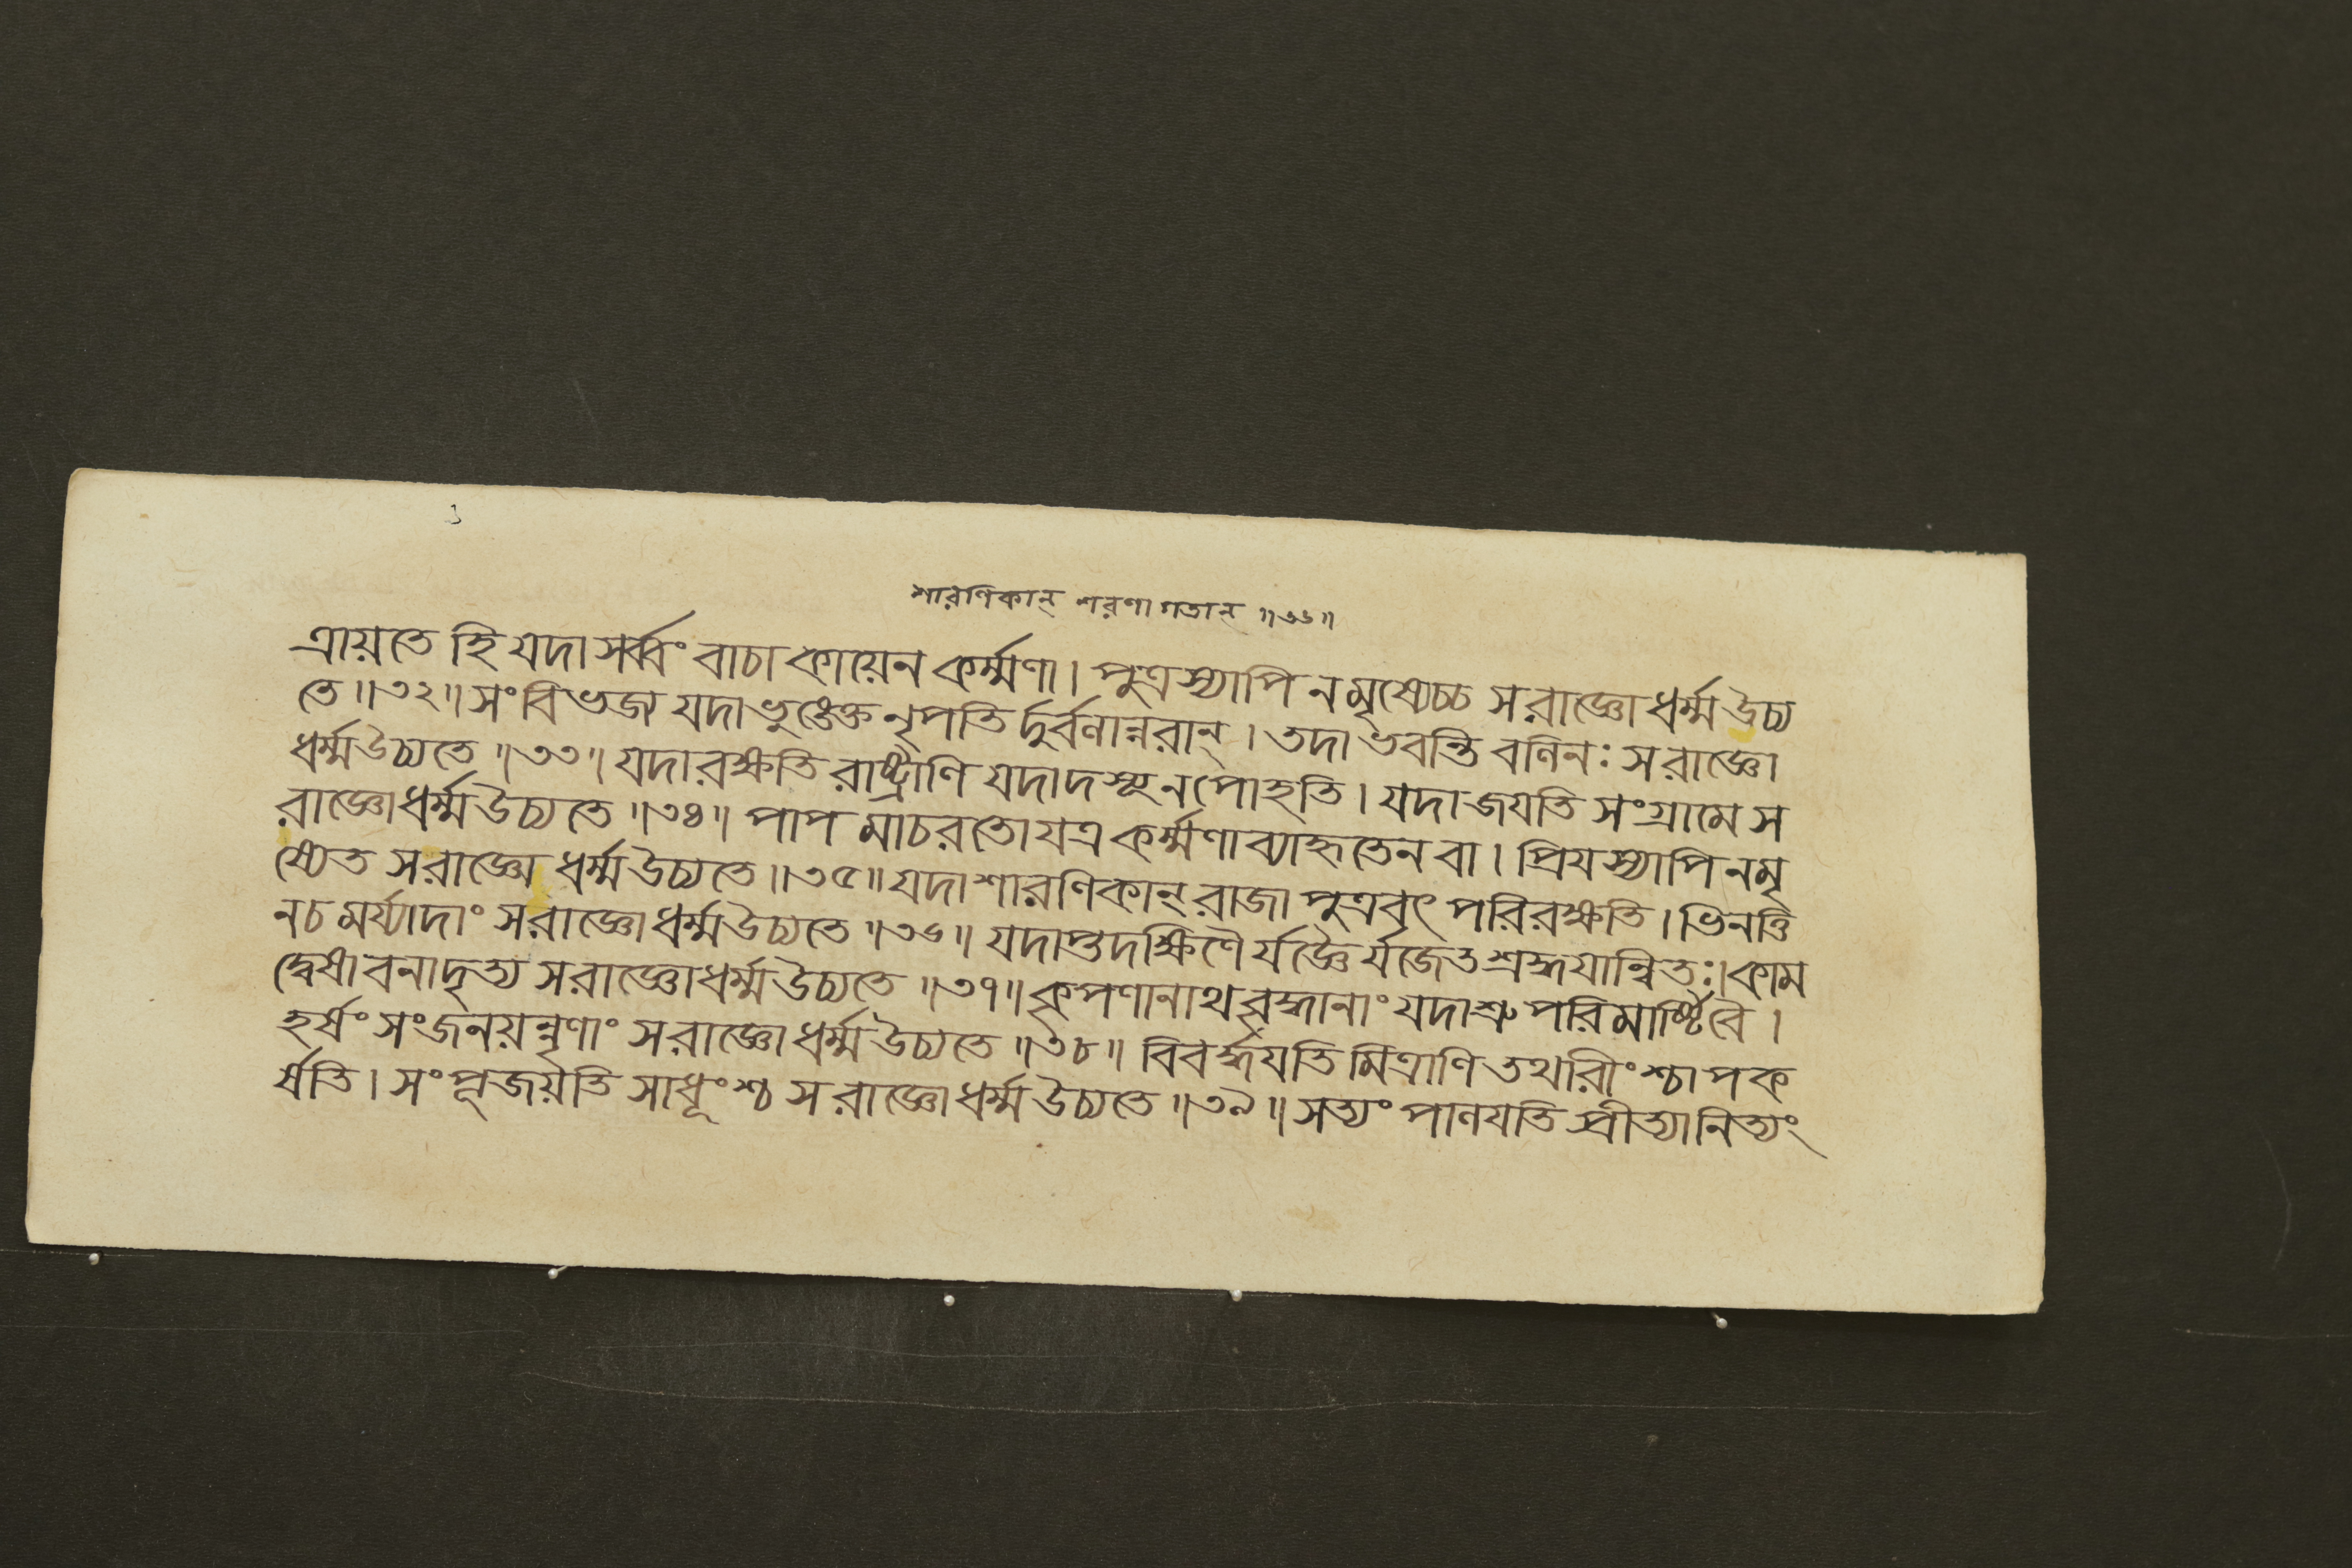 শারণিকান্ শরণাগতান্ ॥৩৬॥
ত্রায়তে হি যদা সর্ব্বং বাচা কায়েন কর্ম্মণা। পুত্রস্যাপি ন মৃষ্যেচ্চ স রাজ্ঞো ধর্ম্ম উচ্য
তে ॥৩২॥ সংবিভজ্য যদা ভুঙ্ক্তে নৃপতির্দুর্বলান্নরান্। তদা ভবন্তি বলিনঃ স রাজ্ঞো
ধর্ম্ম উচ্যতে ॥৩৩॥ যদা রক্ষতি রাষ্ট্রাণি যদা দস্যূনপোহতি। যদা জয়তি সংগ্রামে স
রাজ্ঞো ধর্ম্ম উচ্যতে ॥৩৪॥ পাপমাচরতো যত্র কর্ম্মণা ব্যাহৃতেন বা। প্রিযস্যাপি ন মৃ
ষ্যেত স রাজ্ঞো ধর্ম্ম উচ্যতে ॥৩৫॥ যদা শারণিকান্ রাজা পুত্রবৎ পরিরক্ষতি। ভিনত্তি
ন চ মর্য্যাদাং স রাজ্ঞো ধর্ম্ম উচ্যতে ॥৩৬॥ যদাপ্তদক্ষিণৈর্যজ্ঞৈর্যজেত শ্রদ্ধযান্বিতঃ। কাম
দ্বেষাবনাদৃত্য স রাজ্ঞো ধর্ম্ম উচ্যতে ॥৩৭॥ কৃপণানাথবৃদ্ধানাং যদাশ্রু পরিমার্ষ্টি বৈ।
হর্ষং সংজনয়ন্নৃণাং স রাজ্ঞো ধর্ম্ম উচ্যতে ॥৩৮॥ বিবর্দ্ধযতি মিত্রাণি তথারীংশ্চাপক
র্ষতি। সংপূজয়তি সাধূংশ্চ স রাজ্ঞো ধর্ম্ম উচ্যতে ॥৩৯॥ সত্যং পালযতি প্রীত্যা নিত্যং